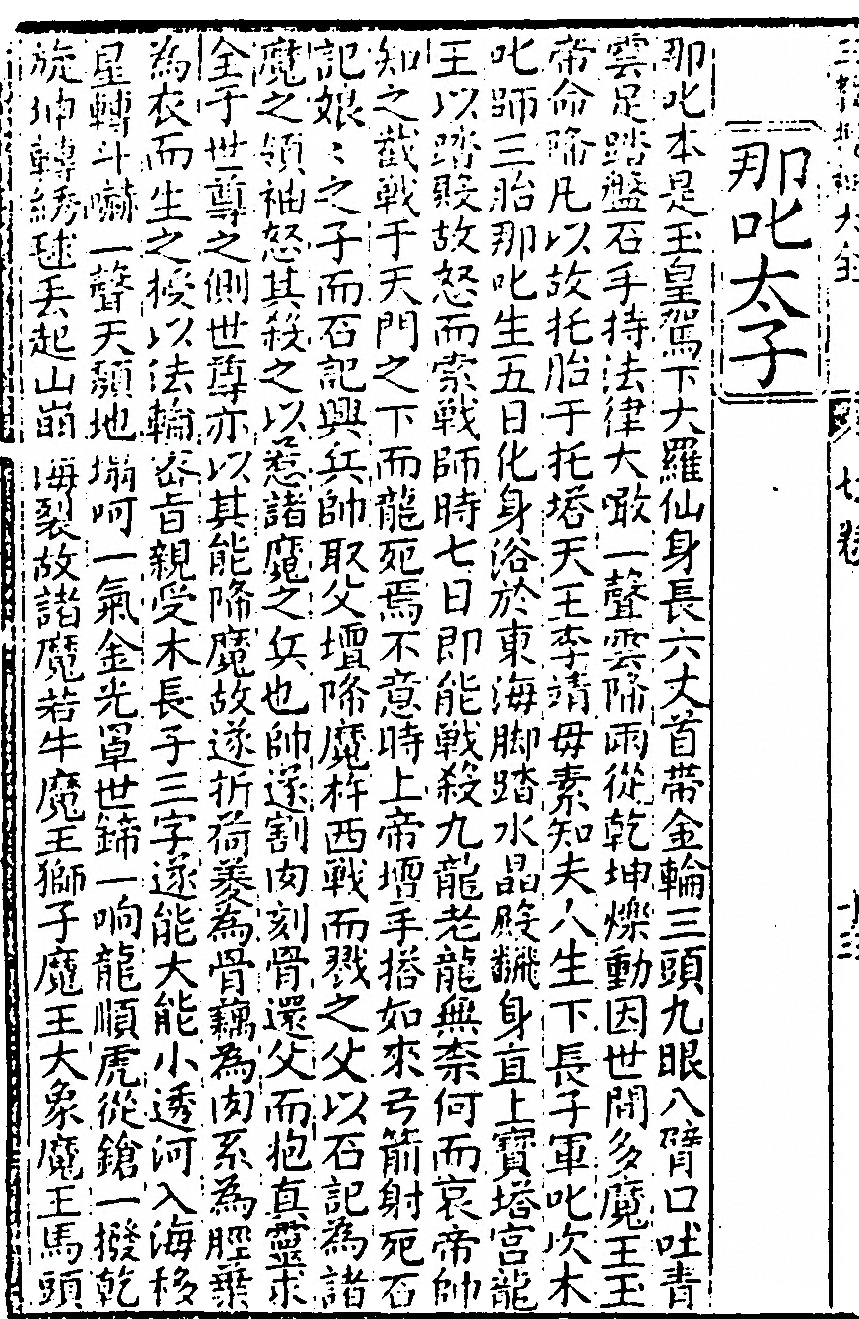 那叱太子
那叱本是玉皇駕下大羅仙身長六丈首带金輪三頭九眼八臂口吐青
雲足踏盤石手持法律大噉一聲雲降雨從乾坤爍動因世間多魔王玉
帝命降凡以故托胎于托塔天王李靖母素知夫人生下長子軍叱次木
叱師三胎那叱生五日化身浴於東海脚踏水晶殿飜身直上寳塔宫龍
王以踏殿故怒而索戰師時七日即能戰殺九龍老龍無奈何而哀帝帥
知之截戰于天門之下而龍死焉不意時上帝壇手搭如來弓箭射死石
記娘〻之子而石記興兵帥取父壇降魔杵西戰而戮之父以石記為諸
魔之領袖怒其殺之以惹諸魔之兵也帥遂割肉刻骨還父而抱真靈求
全于世尊之側世尊亦以其能降魔故遂折荷菱為骨藕為肉系為脛葉
為衣而生之授以法輪宻旨親受木長子三字遂能大能小透河入海移
星轉斗嚇一聲天頽地塌呵一氣金光罩世鍗一响龍順虎從鎗一撥乾
旋坤轉綉毬丟起山崩海裂故諸魔若牛魔王獅子魔王大象魔王馬頭